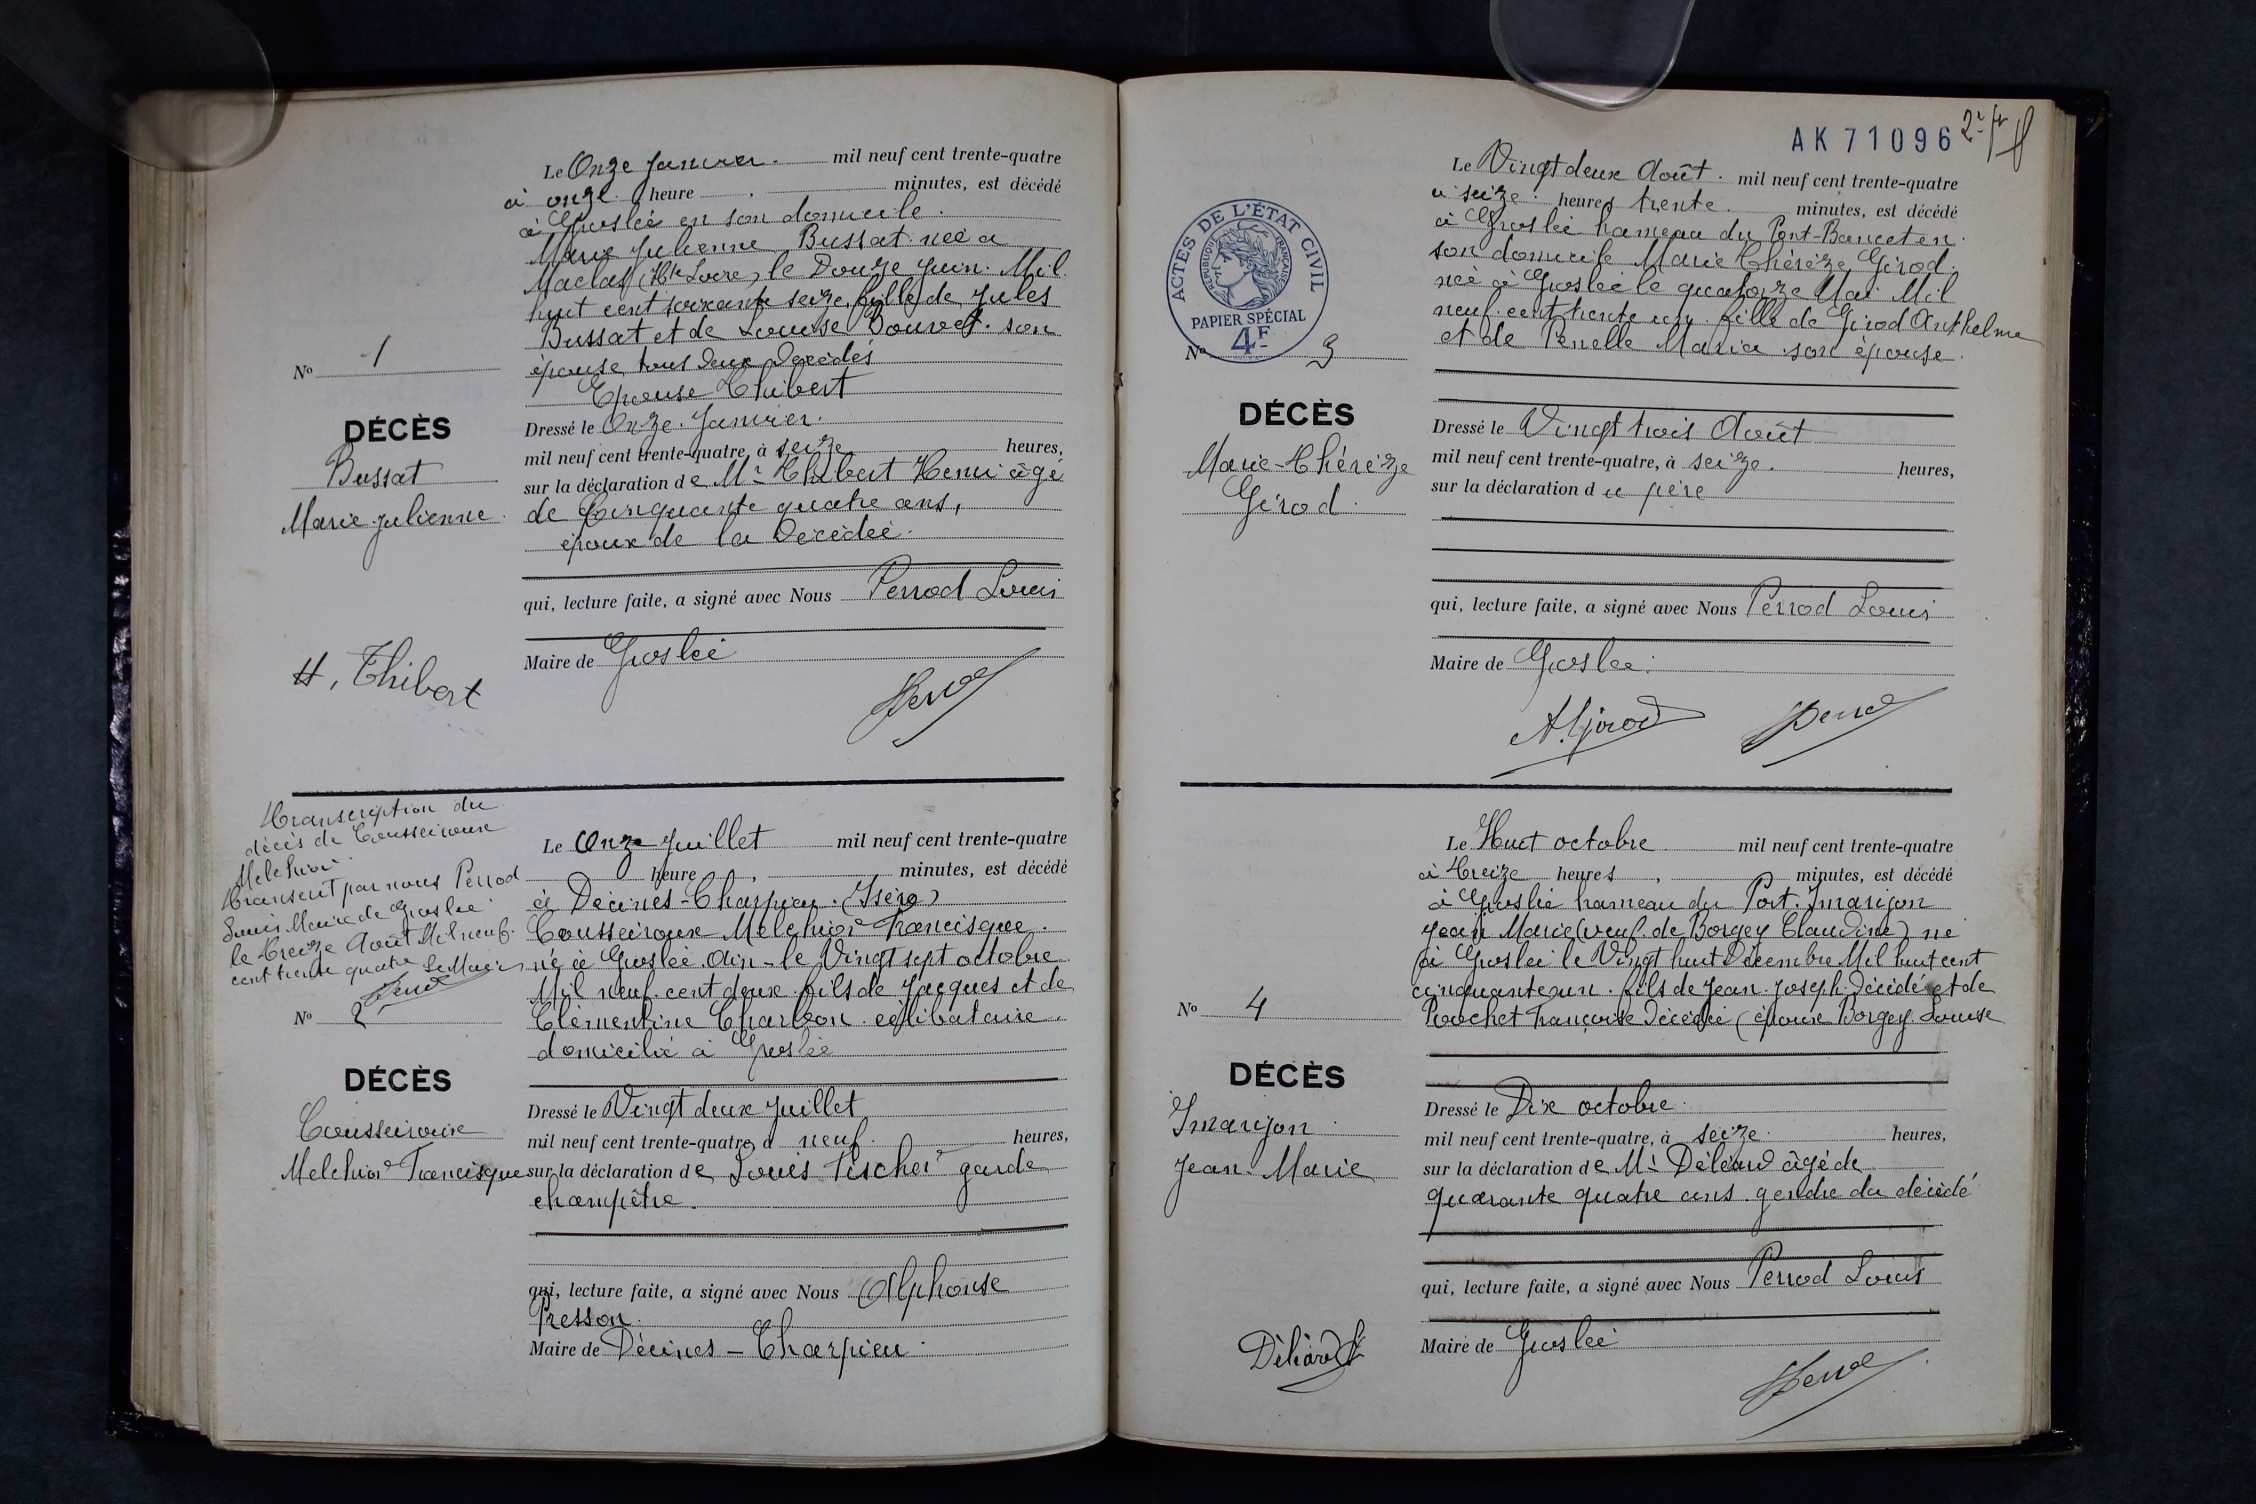 Le Onze Janvier. mil neuf cent trente-quatre
à onze heure minutes, est décédé
à Groslée en son domicile.
Marie Julienne Bussat née a
Maclas (Hte Loire) le Douze Juin. Mil
huit cent soixante seize, fille de Jules
Bussat et de Louise Bouvet. son
épouse tous deux décédés
Epouse Thibert
No 1
DÉCÈS
Bussat
Marie Julienne.
Dressé le Onze. Janvier.
mil neuf cent trente-quatre, à seize heures,
sur la déclaration de Mr Thibert Henri âgé
de Cinquante quatre ans,
époux de la Décédée.
qui, lecture faite, a signé avec Nous Perrod Louis
Maire de Groslée
H. Thibert
Perrod
Transcription du
décès de Cousseiroux
Melchior.
Transcrit par nous Perrod
Louis Maire de Groslée
le treize Août Mil neuf.
cent trente quatre Le Maire
Perrod
No 2
DÉCÈS
Cousseiroux
Melchior Francisque
Le Onze Juillet mil neuf cent trente-quatre
heure, minutes, est décédé
à Décines-Charpieu. (Isère)
Cousseiroux Melchior Francisque.
né à Groslée Ain - le Vingt sept octobre
Mil neuf. cent deux. fils de Jacques et de
Clémentine Charbon. célibataire.
domicilié à Groslée
Dressé le Vingt deux Juillet
mil neuf cent trente-quatre, à neuf. heures,
sur la déclaration de Louis Fischer garde
champêtre.
qui, lecture faite, a signé avec Nous Alphonse
Presson.
Maire de Décines - Charpieu.
AK 71096
2r
Le Vingt deux Août. mil neuf cent trente-quatre
à seize. heures trente. minutes, est décédé
à Groslée hameau du Port-Bancet en.
son domicile Marie Thérèze Girod.
née à Groslée le quatorze Mai Mil
neuf. cent trente un. fille de Girod Anthelme
et de Penelle Maria son épouse.
ACTES DE L'ÉTAT CIVIL
RÉPUBLIQUE FRANÇAISE
PAPIER SPÉCIAL
4F
No 3
DÉCÈS
Marie-Thérèze
Girod.
Dressé le Vingt trois Août
mil neuf cent trente-quatre, à seize. heures,
sur la déclaration du père
qui, lecture faite, a signé avec Nous Perrod Louis
Maire de Groslée.
A. Girod Perrod
Le Huit octobre mil neuf cent trente-quatre
à Treize heures, minutes, est décédé
à Groslée hameau du Port. Imarijon
Jean Marie (veuf de Borgey Claudine) né
à Groslée le Vingt huit Décembre Mil huit cent
cinquante un. fils de Jean Joseph décédé et de
Pochet Françoise Décédée (époux Borgey Louise
No 4
DÉCÈS
Imarijon
Jean-Marie
Dressé le Dix octobre.
mil neuf cent trente-quatre, à seize. heures,
sur la déclaration de Mr Déléard âgé de
quarante quatre ans. gendre du décédé
qui, lecture faite, a signé avec Nous Perrod Louis
Maire de Groslée
Déléard
Perrod